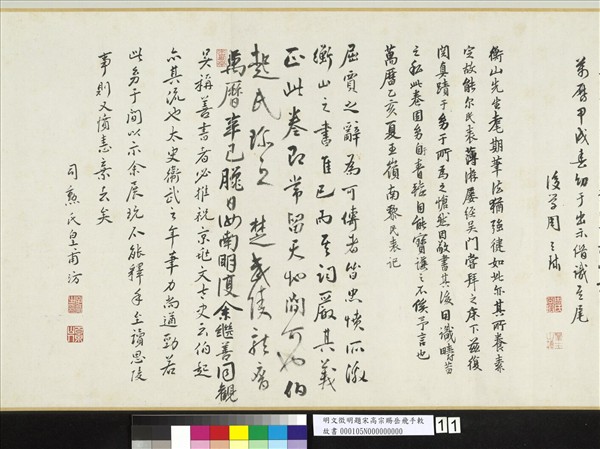 萬曆甲戌春幼于出示偕識其尾
後學周天球
衡山先生耄期筆法猶強健如此亦其所養素
定故能尔民表薄游屡經吳門嘗拜之床下茲復
閱真蹟于幼于所為之愴然因敬書其後目識疇昔
之私此卷固自能寶護之不俟予言也
萬曆乙亥夏五嶺南黎民表記
屈賈之辭為可儔者皆忠憤所激
衡山之書其詞嚴其義
正此卷即常留天地間可也伯
起氏珎之 楚龍膺
萬曆辛巳臘日汝南明復余繼善同觀
吳稱善書者必推祝京兆文太史云伯起
亦其流也太史衛武之年筆力尚遒勁若
此幼于間以示余展玩不能釋手至讀思陵
事則又憤恚棄去矣
司勳氏皇甫汸
明文徵明題宋高宗賜岳飛手敕
故書 000105N000000000
11